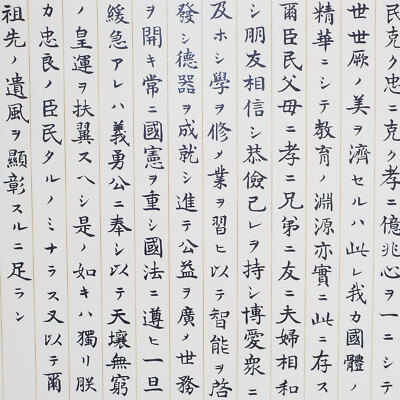 民克ク忠ニ克ク孝ニ億兆心ヲ一ニシテ
世世厥ノ美ヲ濟セルハ此レ我カ國體ノ
精華ニシテ教育ノ淵源亦實ニ此ニ存ス
爾臣民父母ニ孝ニ兄弟ニ友ニ夫婦相和
シ朋友相信シ恭儉己レヲ持シ博愛衆ニ
及ホシ學ヲ修メ業ヲ習ヒ以テ智能ヲ啓
發シ德器ヲ成就シ進テ公益ヲ廣メ世務
ヲ開キ常ニ國憲ヲ重シ國法ニ遵ヒ一旦
緩急アレハ義勇公ニ奉シ以テ天壤無窮
ノ皇運ヲ扶翼スヘシ是ノ如キハ獨リ朕
カ忠良ノ臣民タルノミナラス又以テ爾
祖先ノ遺風ヲ顯彰スルニ足ラン